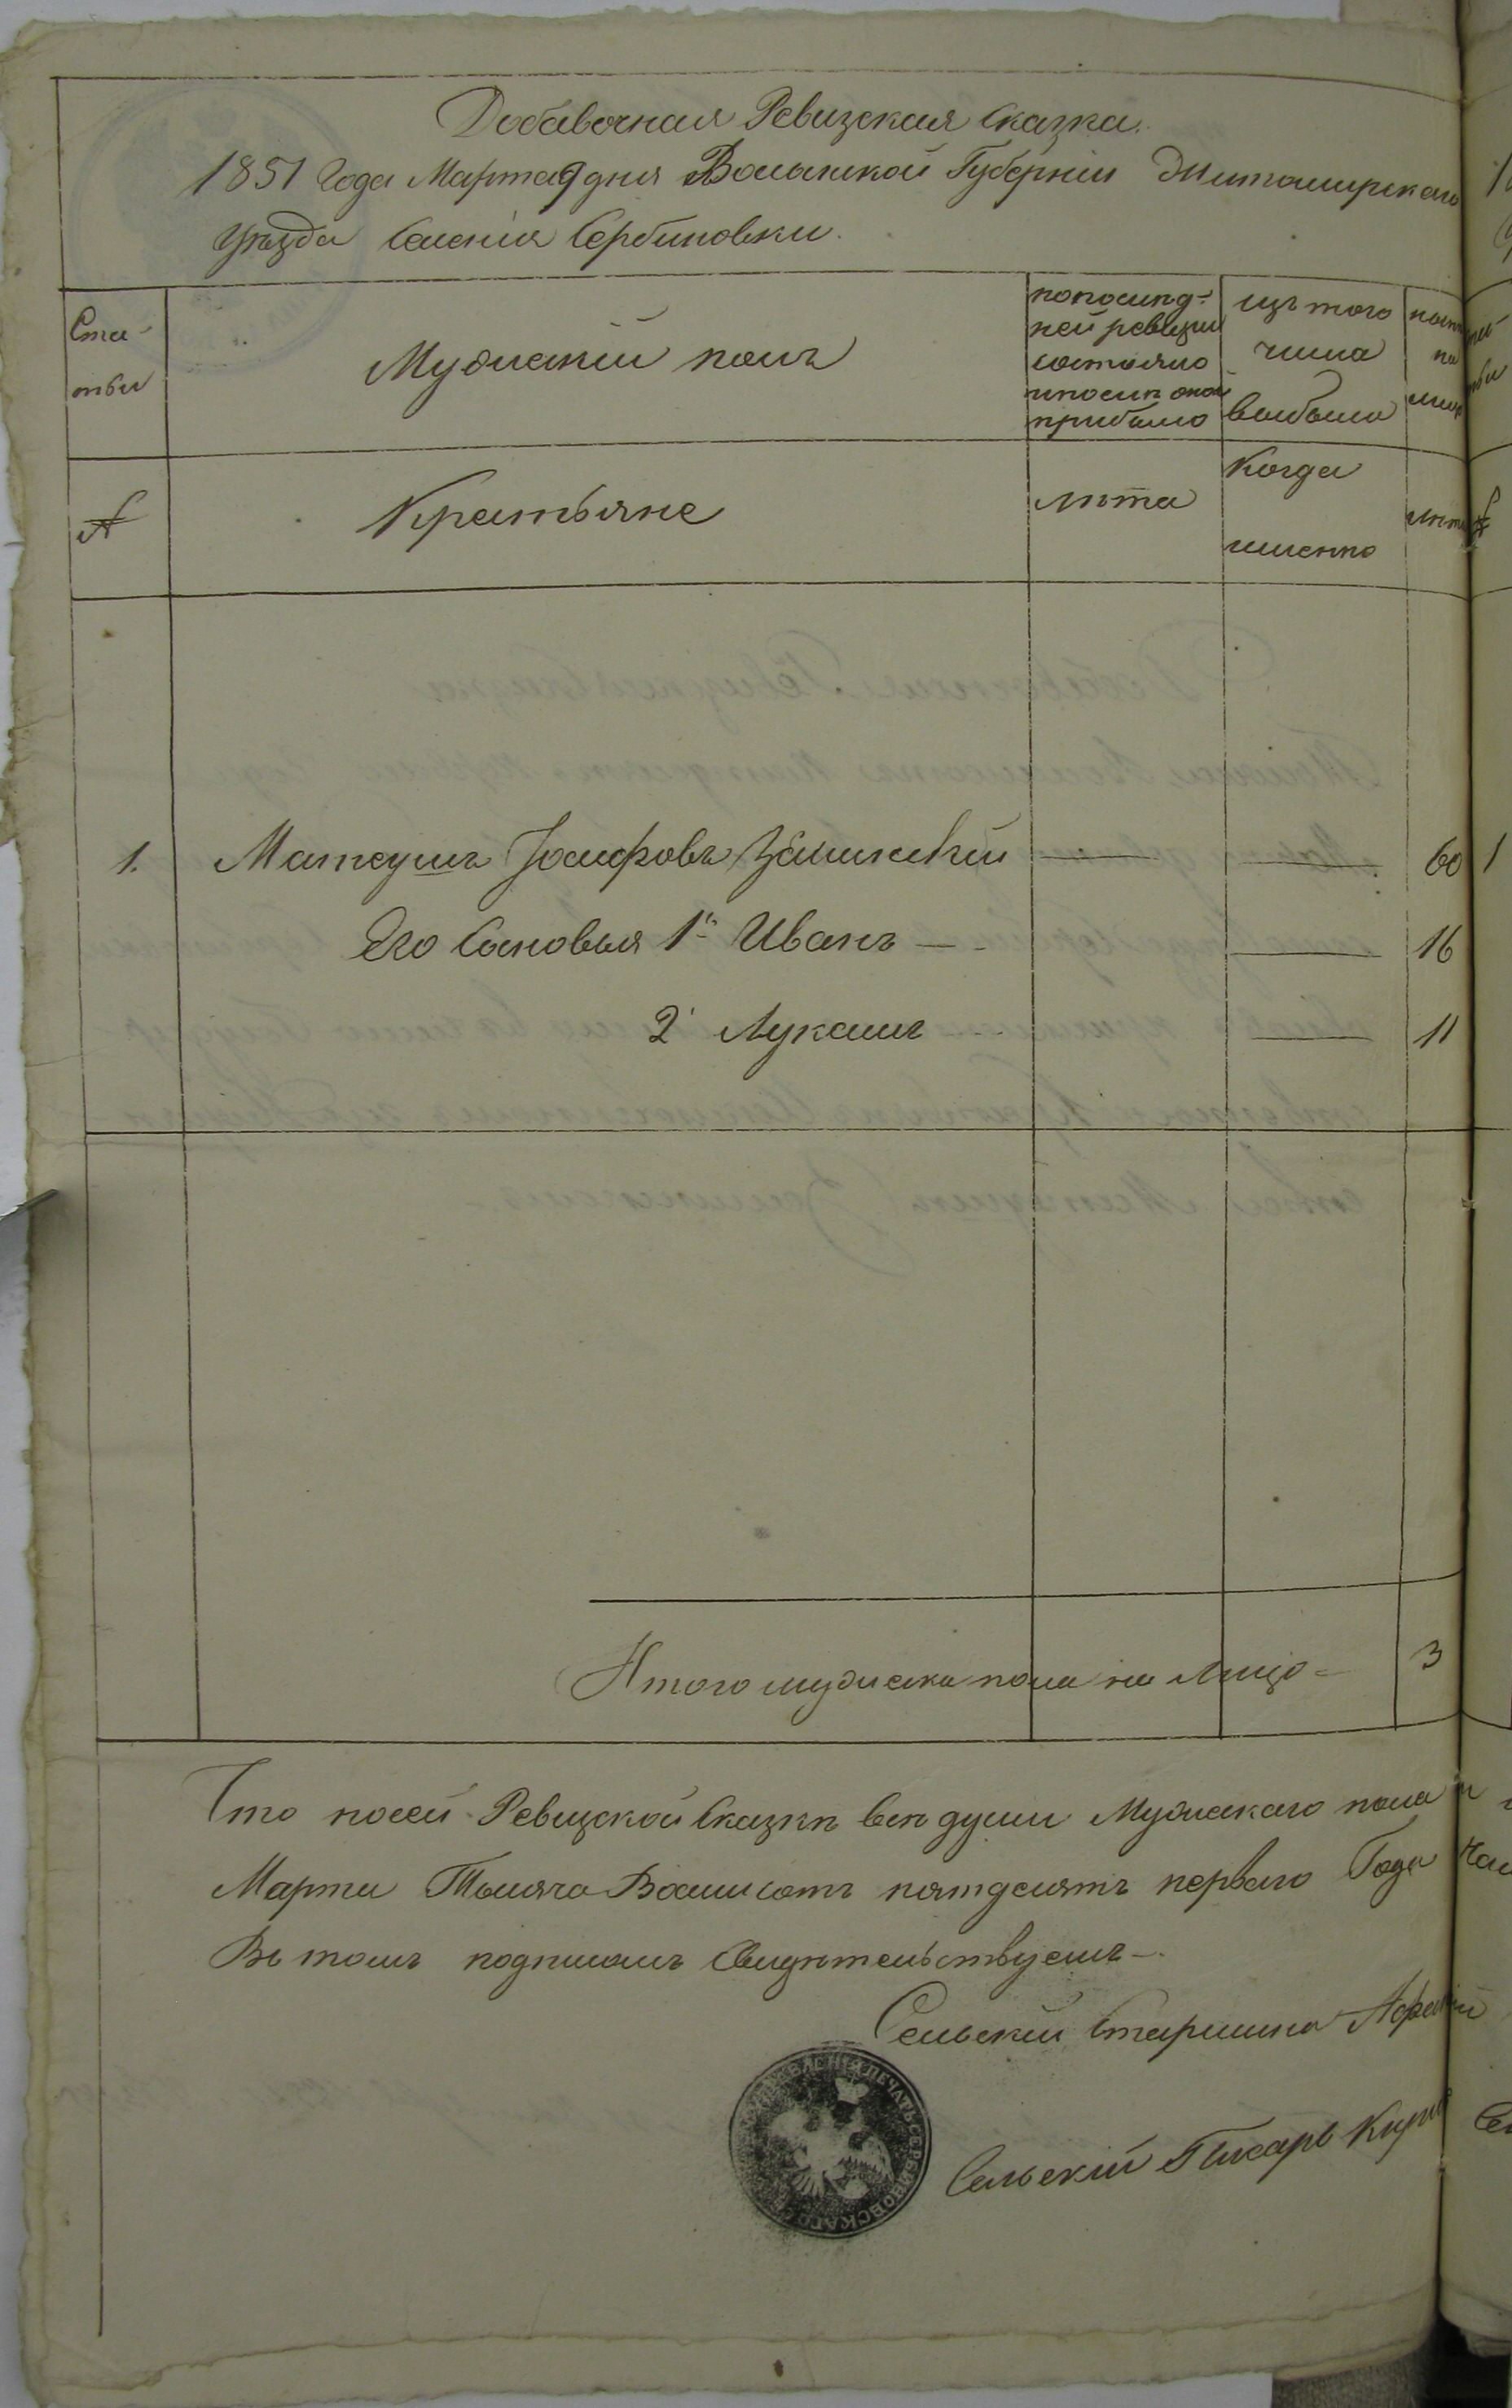 Добавочная Ревизская Сказка.
1851 Года Марта 9 дня Волынской Губерніи Житомирскаго
Уѣзда Селенія Сербиновки.
Ста-
тьи
Мужескій полъ
по послѣд-
ней ревизіи
состояло
и послѣ оной
прибыло
изъ того
числа
выбыло
№
Крестьяне
лѣта
Когда
именно
лѣта
1. Матеушъ Іосифовъ Залинскій — — 60
Его Сыновья 1й Иванъ — — 16
2й Лукашъ — — 11
Итого мужеска пола на лицо 3
Что по сей Ревизской Сказкѣ всѣ души Мужескаго пола
Марта Тысяча Восемсотъ пятдесятъ перваго Года
Въ томъ подписомъ Свидѣтельствуемъ —
Сельскій Старшина
Сельскій Писарь